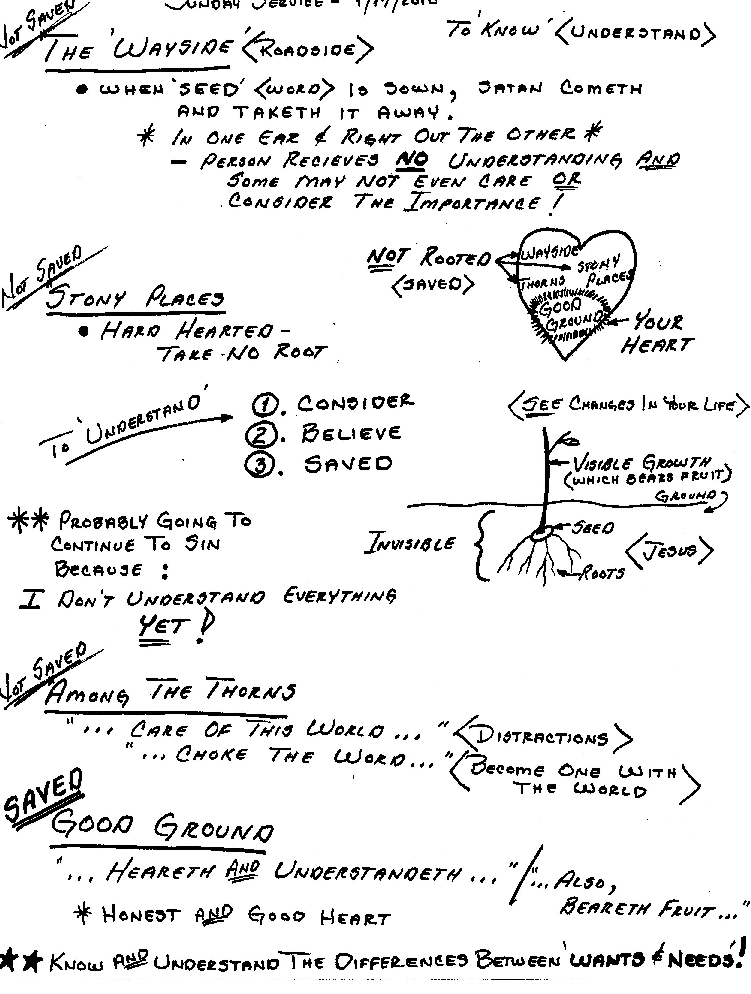 SUNDAY SERVICE -
NOT SAVED
TO 'KNOW' <UNDERSTAND>
THE 'WAYSIDE' <ROADSIDE>
• WHEN 'SEED' <WORD> IS SOWN, SATAN COMETH
AND TAKETH IT AWAY.
* IN ONE EAR & RIGHT OUT THE OTHER *
– PERSON RECIEVES NO UNDERSTANDING AND
SOME MAY NOT EVEN CARE OR
CONSIDER THE IMPORTANCE!
NOT SAVED
STONY PLACES
• HARD HEARTED –
TAKE NO ROOT
NOT ROOTED
<SAVED>
WAYSIDE
STONY
PLACES
THORNS
GOOD
GROUND
YOUR
HEART
TO 'UNDERSTAND'
1. CONSIDER
2. BELIEVE
3. SAVED
<SEE CHANGES IN YOUR LIFE>
VISIBLE GROWTH
(WHICH BEARS FRUIT)
GROUND
INVISIBLE
SEED
ROOTS
<JESUS>
** PROBABLY GOING TO
CONTINUE TO SIN
BECAUSE :
I DON'T UNDERSTAND EVERYTHING
YET!
NOT SAVED
AMONG THE THORNS
"... CARE OF THIS WORLD ..." <DISTRACTIONS>
"... CHOKE THE WORD..." <BECOME ONE WITH
THE WORLD>
SAVED
GOOD GROUND
"... HEARETH AND UNDERSTANDETH ..." / "... ALSO,
BEARETH FRUIT..."
* HONEST AND GOOD HEART
★★ KNOW AND UNDERSTAND THE DIFFERENCES BETWEEN 'WANTS & NEEDS'!